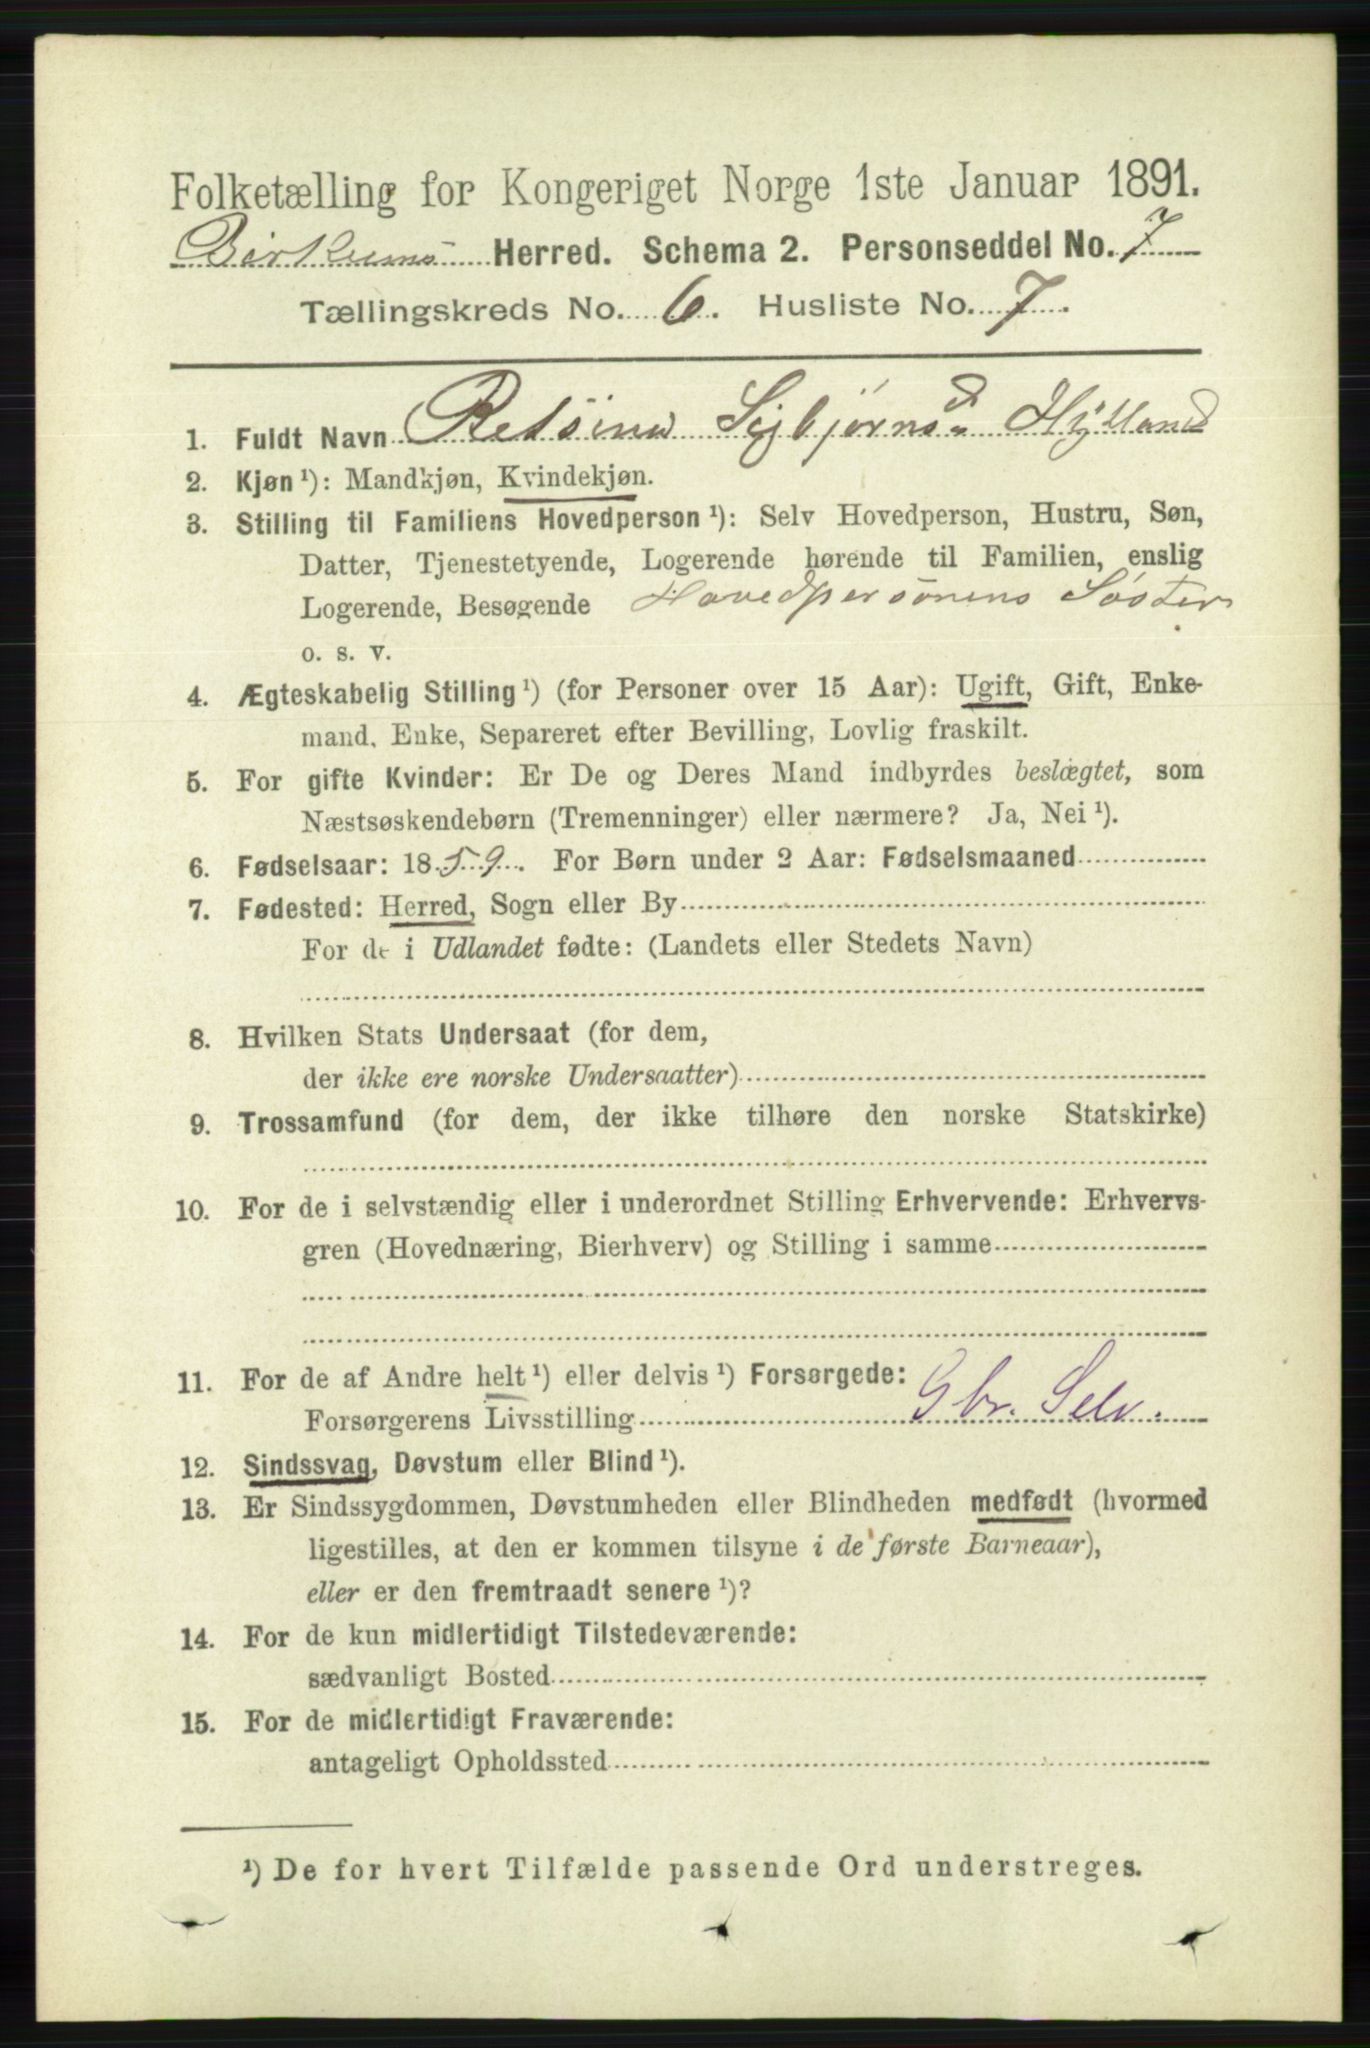 Folketælling for Kongeriget Norge 1ste Januar 1891.
Herred. Schema 2. Personseddel No. 7
Tællingskreds No. 6. Husliste No. 7.
1. Fuldt Navn Sigbjørnsd Hylland
2. Kjøn ¹): Mandkjøn, Kvindekjøn.
3. Stilling til Familiens Hovedperson ¹): Selv Hovedperson, Hustru, Søn,
Datter, Tjenestetyende, Logerende hørende til Familien, enslig
Logerende, Besøgende Hovedpersonens Søster
o. s. v.
4. Ægteskabelig Stilling ¹) (for Personer over 15 Aar): Ugift, Gift, Enke-
mand, Enke, Separeret efter Bevilling, Lovlig fraskilt.
5. For gifte Kvinder: Er De og Deres Mand indbyrdes beslægtet, som
Næstsøskendebørn (Tremenninger) eller nærmere? Ja, Nei ¹).
6. Fødselsaar: 1859. For Børn under 2 Aar: Fødselsmaaned
7. Fødested: Herred, Sogn eller By
For de i Udlandet fødte: (Landets eller Stedets Navn)
8. Hvilken Stats Undersaat (for dem,
der ikke ere norske Undersaatter)
9. Trossamfund (for dem, der ikke tilhøre den norske Statskirke)
10. For de i selvstændig eller i underordnet Stilling Erhvervende: Erhvervs-
gren (Hovednæring, Bierhverv) og Stilling i samme
11. For de af Andre helt ¹) eller delvis ¹) Forsørgede:
Forsørgerens Livsstilling Gbr. Selv.
12. Sindssvag, Døvstum eller Blind ¹).
13. Er Sindssygdommen, Døvstumheden eller Blindheden medfødt (hvormed
ligestilles, at den er kommen tilsyne i de første Barneaar),
eller er den fremtraadt senere ¹)?
14. For de kun midlertidigt Tilstedeværende:
sædvanligt Bosted
15. For de midlertidigt Fraværende:
antageligt Opholdssted
¹) De for hvert Tilfælde passende Ord understreges.